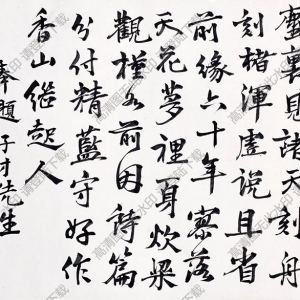 塵裏見諸天刻舟
刻楮渾虛說且省
前緣六十年寥落
天花夢裡身炊粱
觀槿如前因詩篇
分付精藍守好作
香山繼起人
奉題子才先生